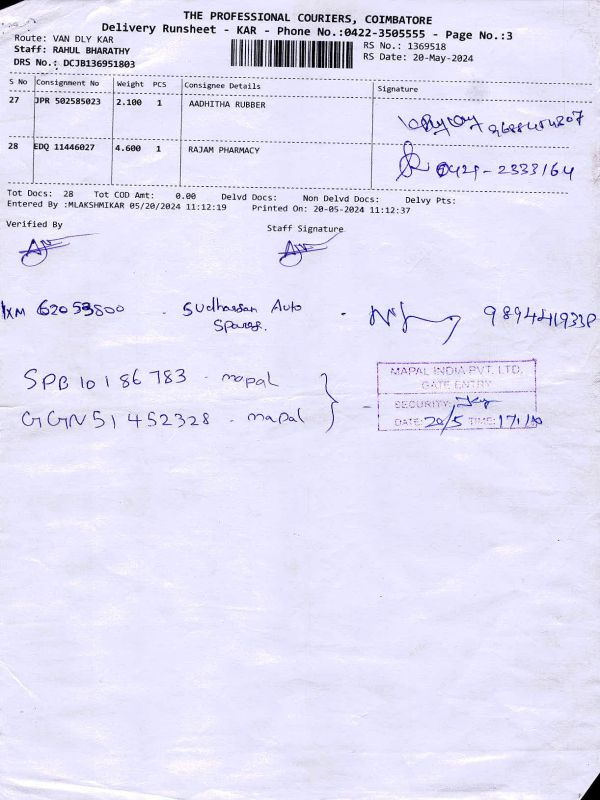 THE PROFESSIONAL COURIERS, COIMBATORE
Delivery Runsheet - KAR - Phone No.:0422-3505555 - Page No.:3
Route: VAN DLY KAR
Staff: RAHUL BHARATHY
DRS No.: DCJB136951803
RS No.: 1369518
RS Date: 20-May-2024
S No Consignment No Weight PCS Consignee Details Signature
27 JPR 502585023 2.100 1 AADHITHA RUBBER
28 EDQ 11446027 4.600 1 RAJAM PHARMACY 0421-2333164
Tot Docs: 28 Tot COD Amt: 0.00 Delvd Docs: Non Delvd Docs: Delvy Pts:
Entered By :MLAKSHMIKAR 05/20/2024 11:12:19 Printed On: 20-05-2024 11:12:37
Verified By Staff Signature
IXM 62053800 - Sudhassan Auto
Spares.
SPB 101 86 783 - mapal
GGN 51 452328 - mapal
MAPAL INDIA PVT. LTD.
GATE ENTRY
SECURITY:
DATE: 20/5 TIME: